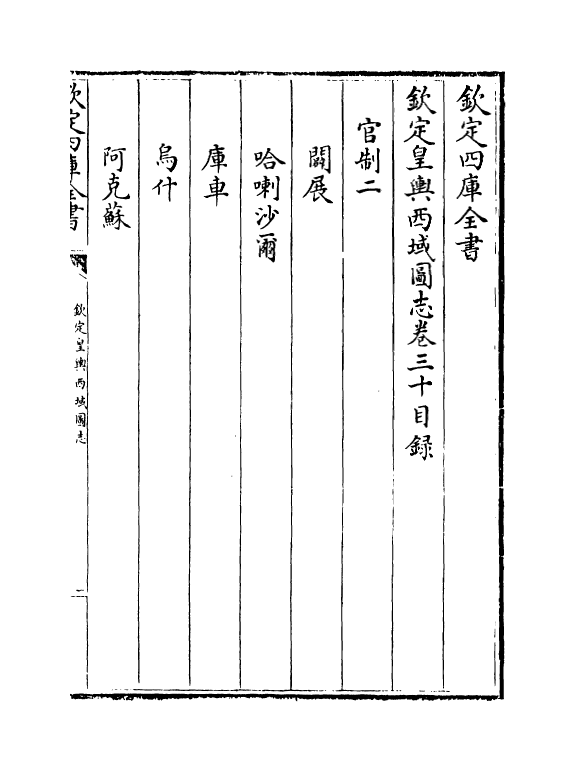 欽定四庫全書
欽定皇輿西域圖志卷三十目録
官制二
闢展
哈喇沙爾
庫車
烏什
阿克蘇
欽定四庫全書
欽定皇輿西域圖志
一